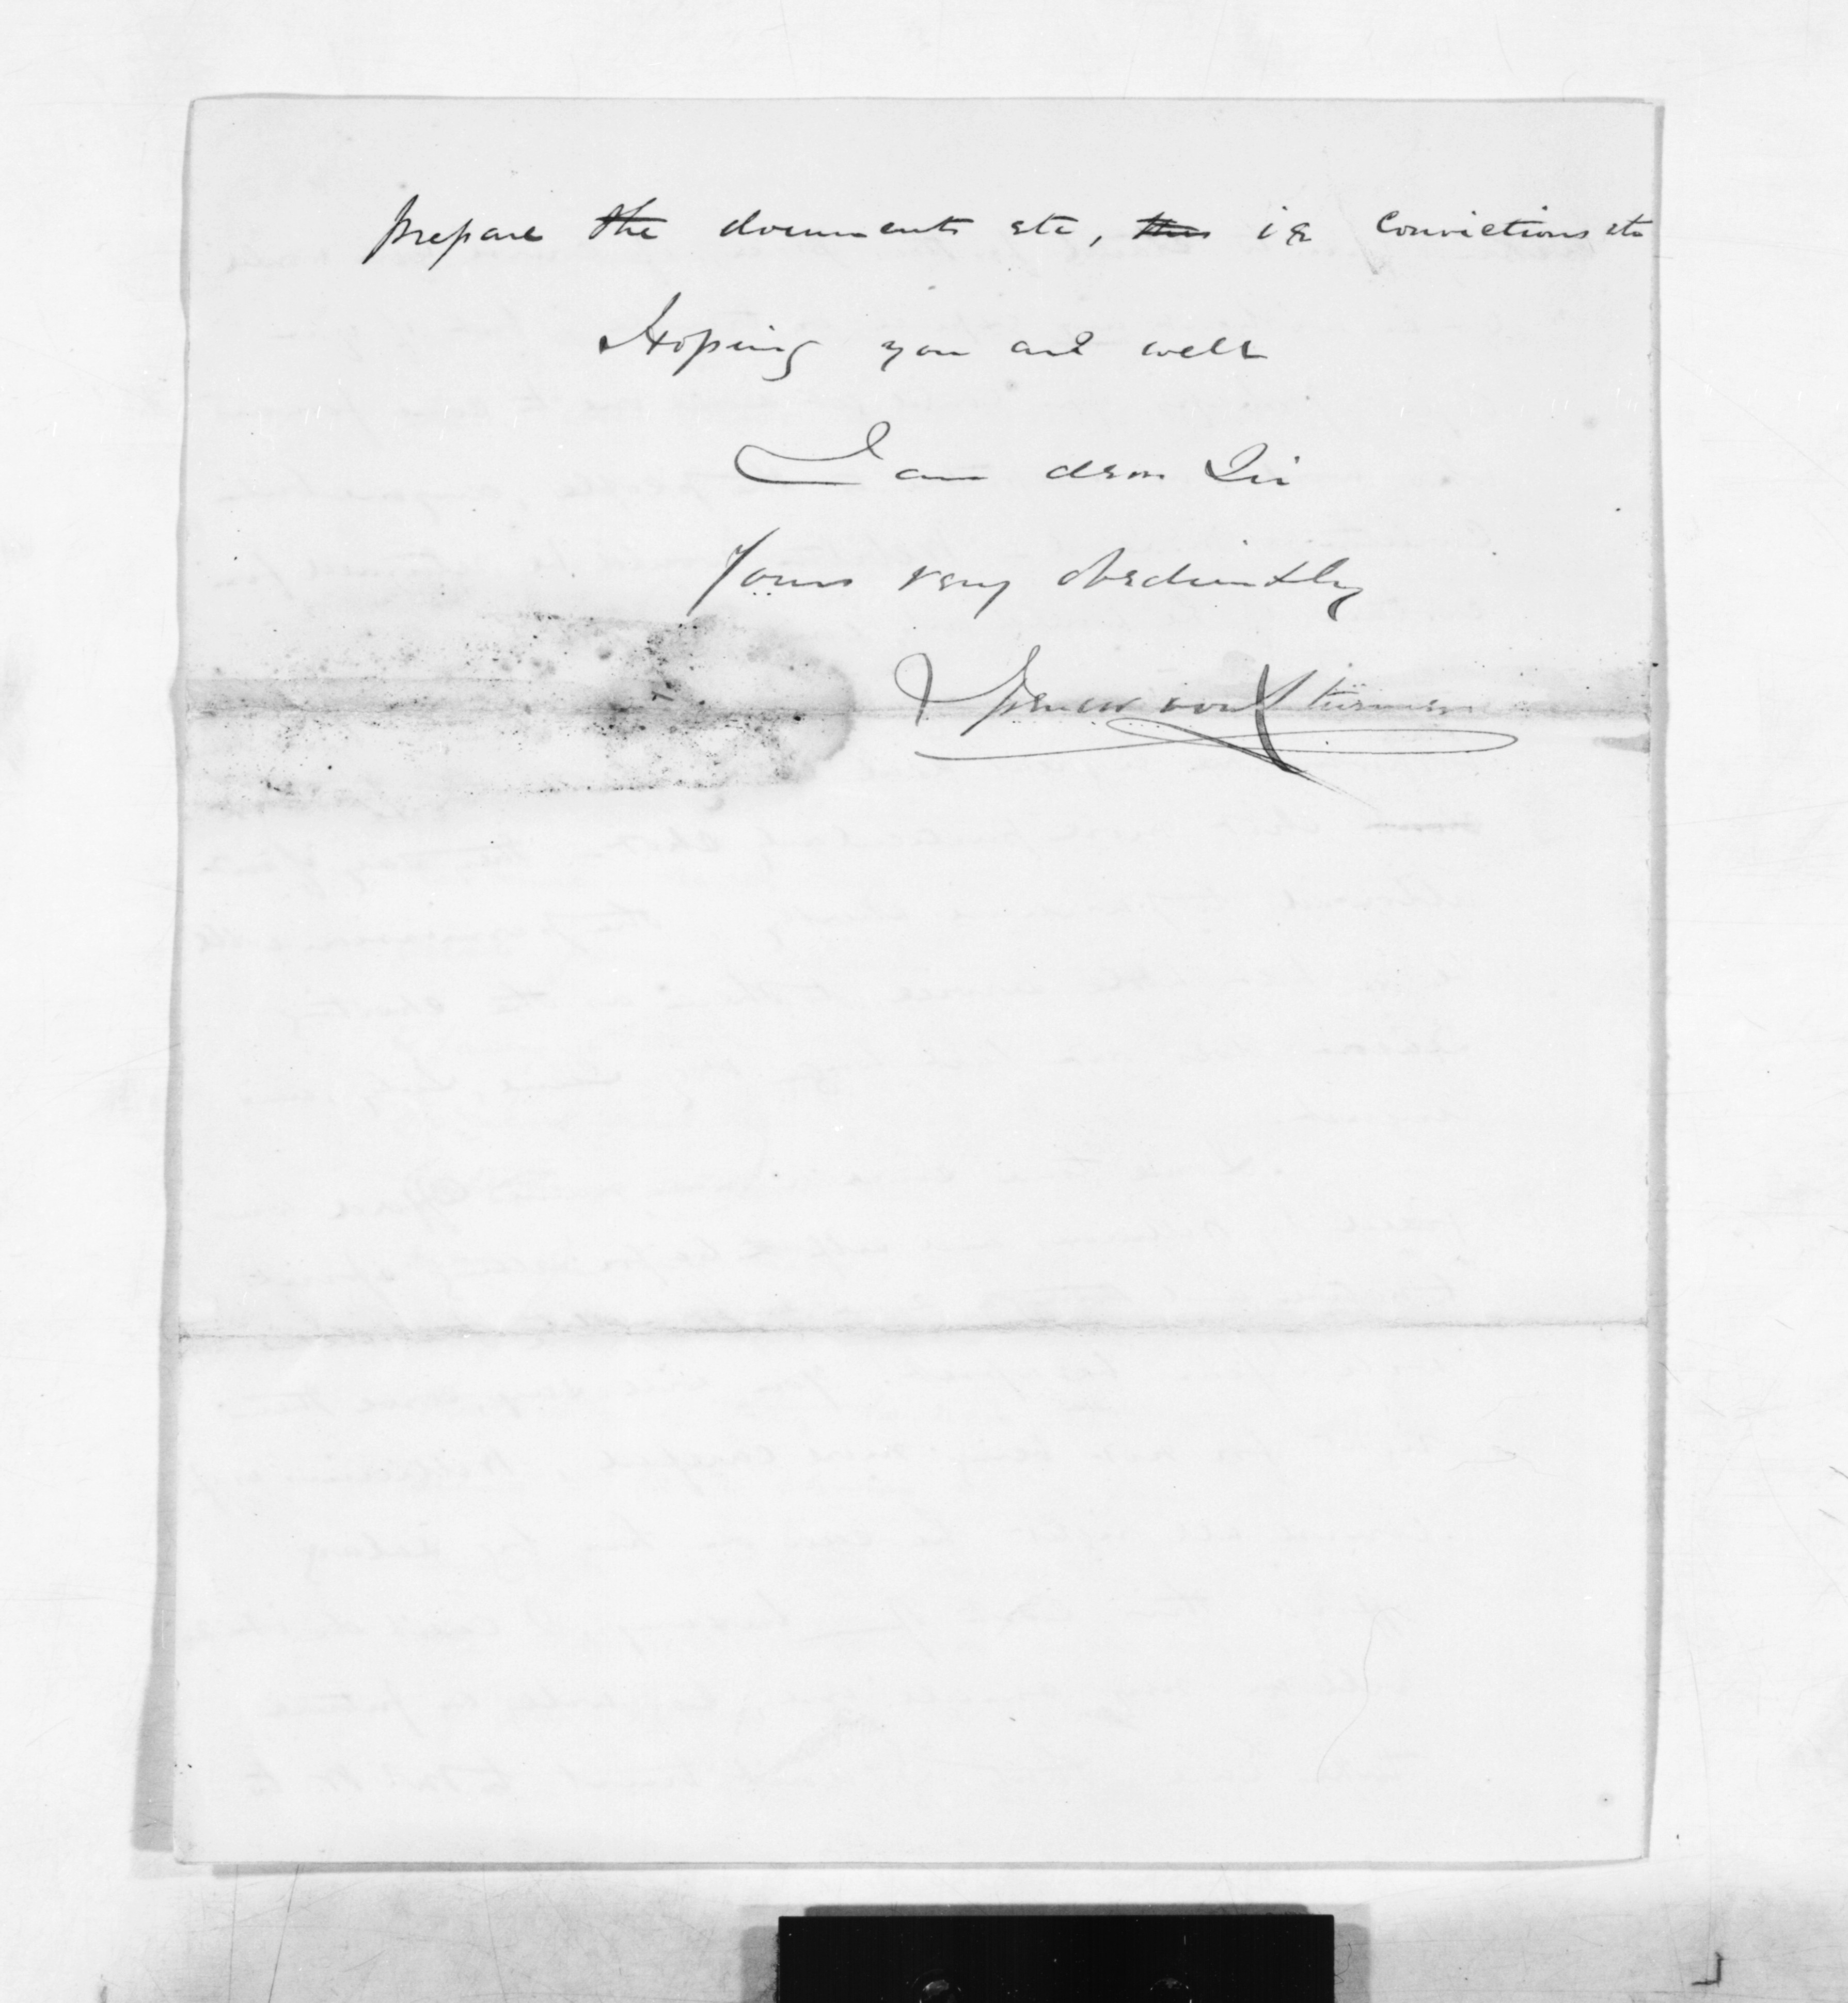 prepare the documents etc, this ie convictions etc
Hoping you are well
I am dear Sir
Yours very obediently
Spencer von Sturmer